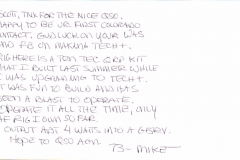 SCOT, TNX FOR THE NICE QSO,
HAPPY TO BE UR FIRST COLORADO
CONTACT. GUD LUCK ON YOUR WAS
AND FB ON MAKING TECH+.
RIG HERE IS A TEN TEC QRP KIT
THAT I BUILT LAST SUMMER WHILE
I WAS UPGRADING TO TECH+.
IT WAS FUN TO BUILD AND HAS
BEEN A BLAST TO OPERATE.
OPERATE IT ALL THE TIME, ONLY
HF RIG I OWN SO FAR.
OUTPUT ABT 4 WATTS INTO A G5RV.
HOPE TO QSO AGN
73 - MIKE